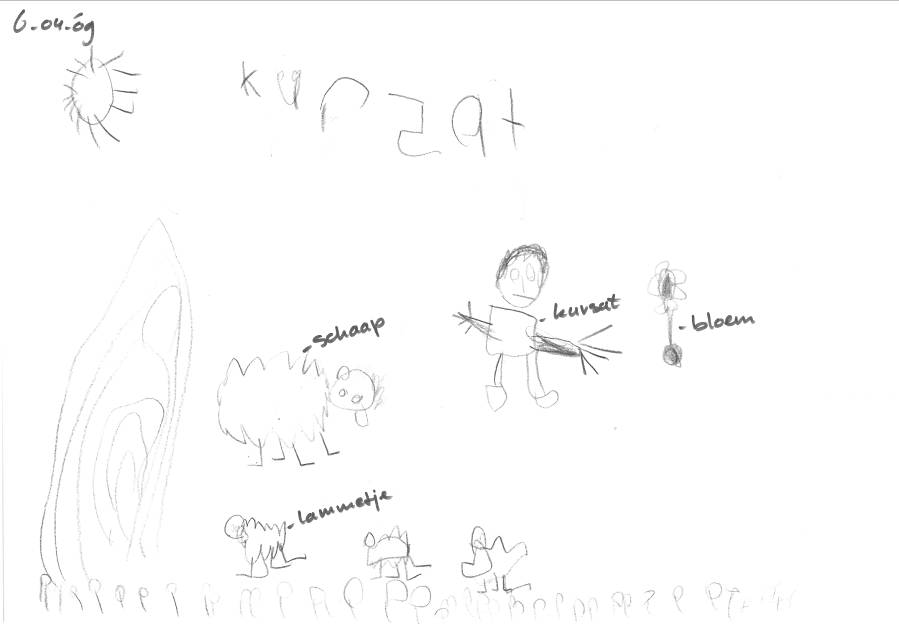 6-04-09
kurzat
schaap
kursat
bloem
lammetje